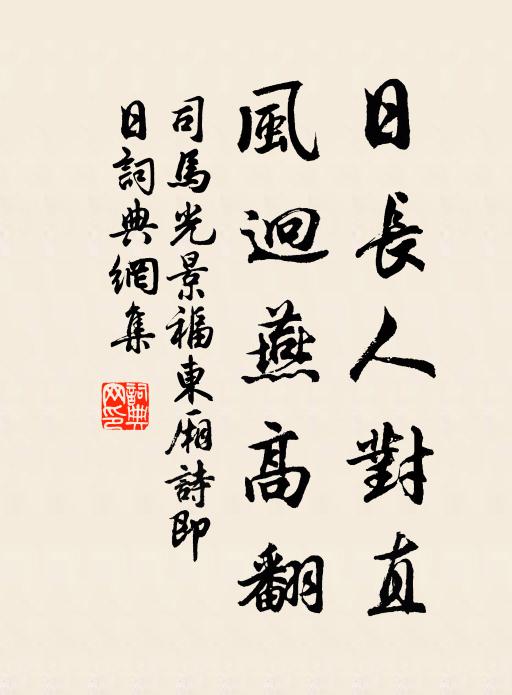 日長人對直
風迴燕高翻
司馬光景福東廂詩即
日詞典網集
詞典網印